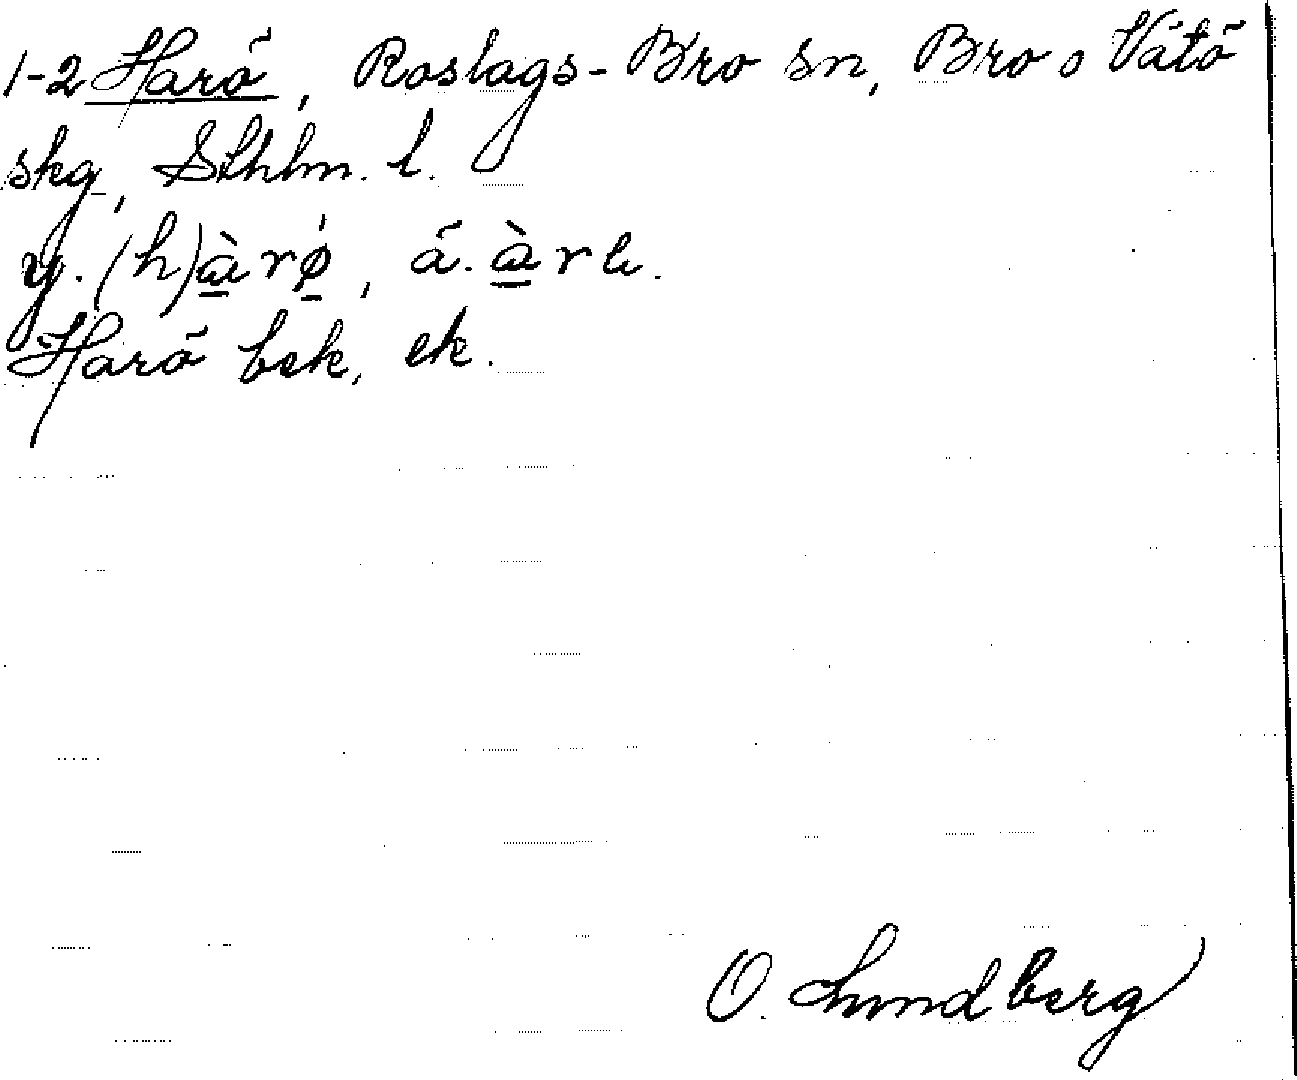 1-2 Harö, Roslags-Bro sn, Bro o Vätö
skg, Sthlm. l.
y. (h)àrø̀, ä. àrɐ.
Harö bek, ek.
O. Lundberg